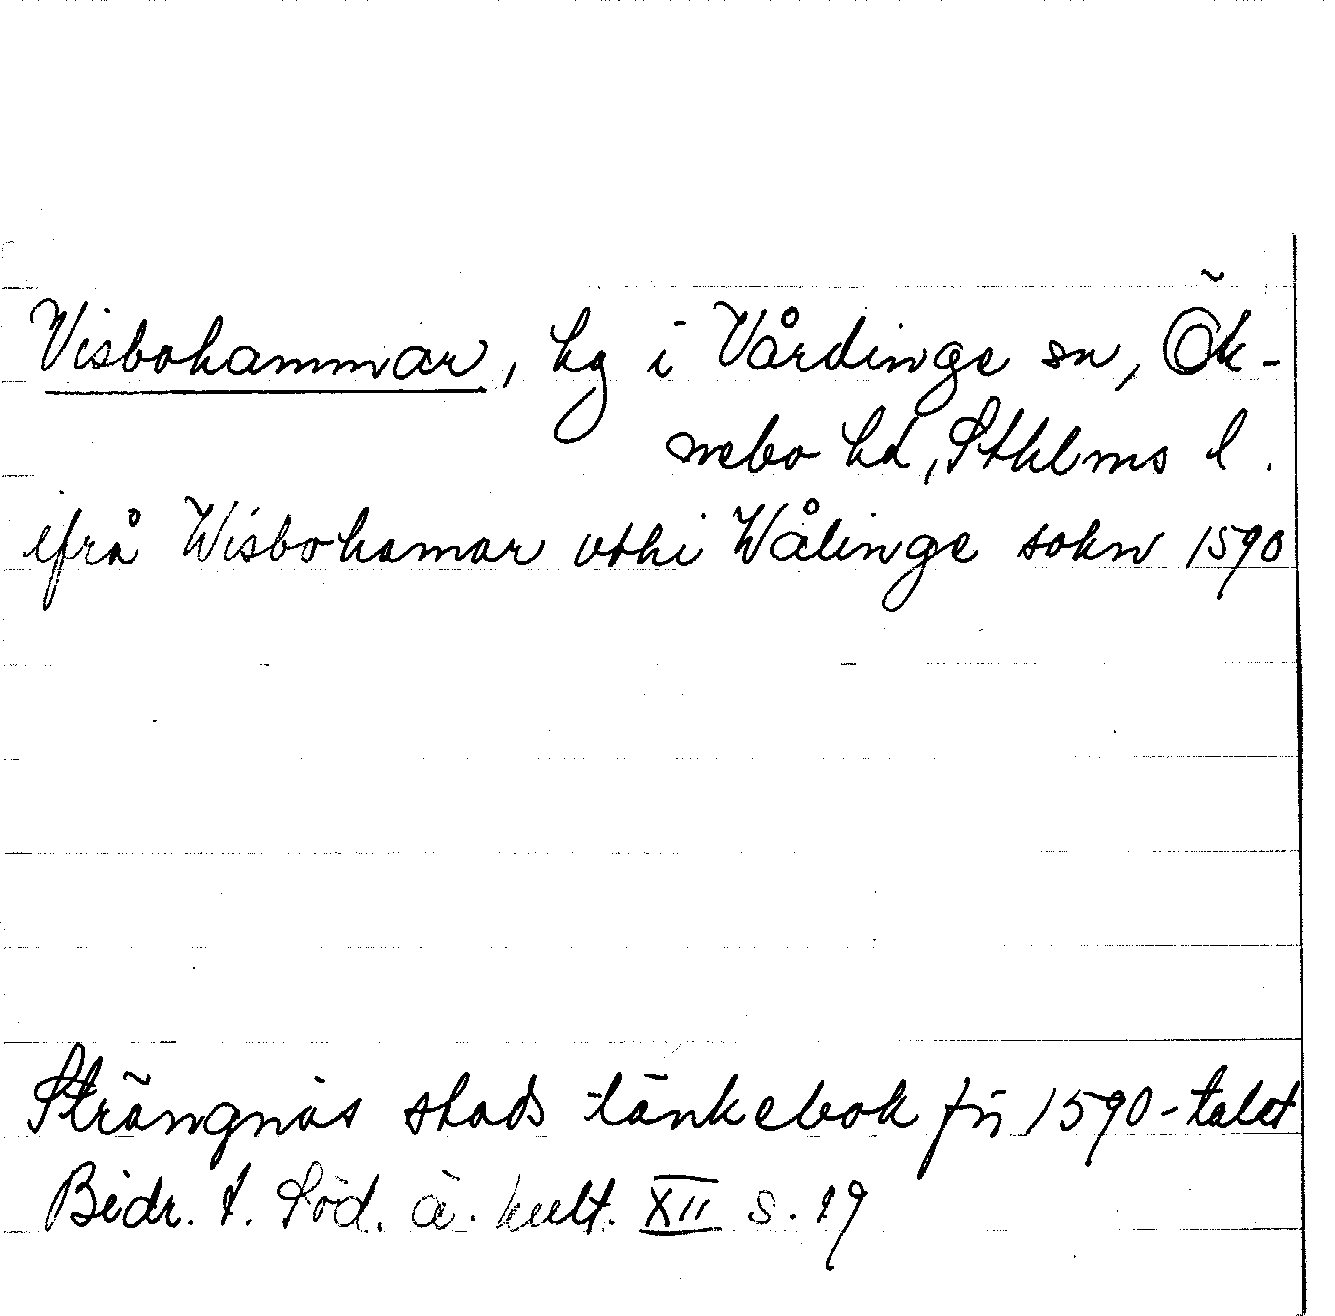 Visbohammar, hg i Vårdinge sn, Ök-
nebo hd, Sthlms l.
ifrå Wisbohamar vthi Wålinge sokn 1590
Strängnäs stads tänkebok fr 1590-talet
Bidr. t. Söd. ä. kult. XII s. 19